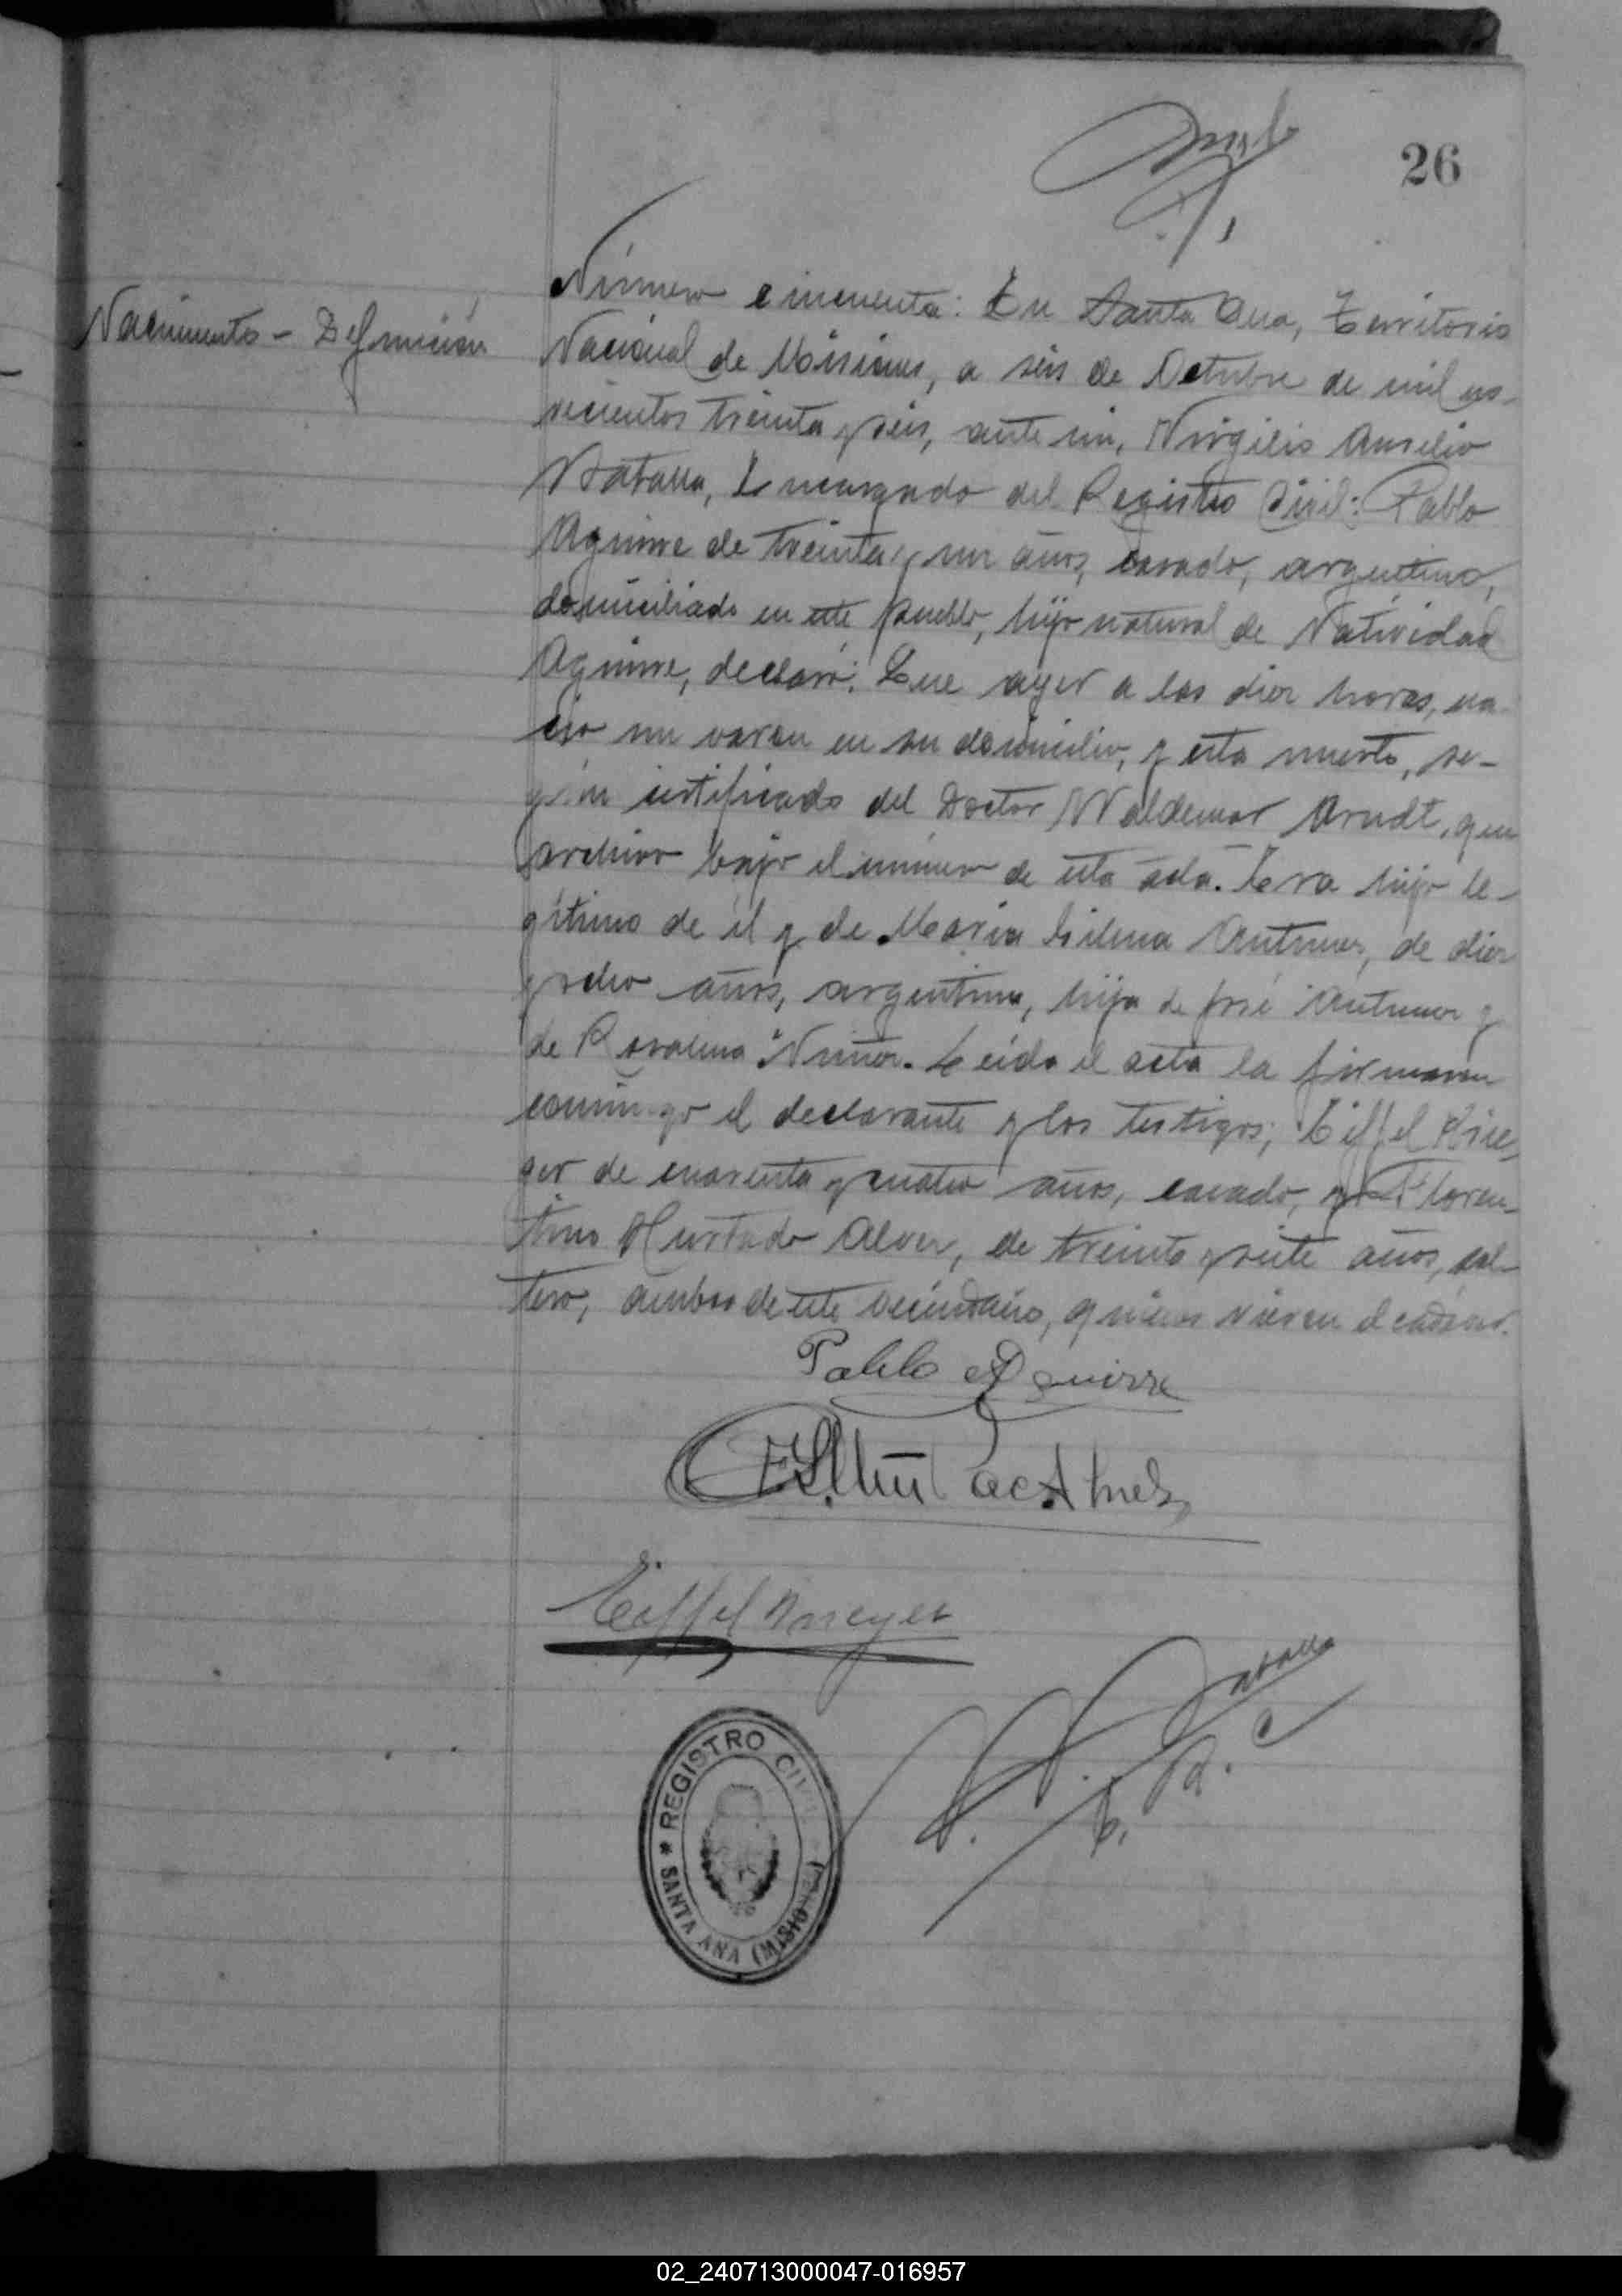 26
Número cincuenta: En Santa Ana, Territorio
Nacimiento - Defunción
Nacional de Misiones, a seis de Octubre de mil no-
vecientos treinta y seis, ante mi, Virgilio Aurelio
Encargado del Registro Civil: Pablo
Aguirre de treinta y un años, casado, argentino,
domiciliado en este pueblo, hijo natural de Natividad
Aguirre, declaró: Que ayer a las diez horas, na-
cio un varon en su domicilio, y esta muerto, se-
gún certificado del Doctor Waldemar Arndt, que
archivo bajo el número de esta acta. Era hijo le-
gítimo de él y de Maria Antunez, de diez
y ocho años, argentina, hija de José Antunez y
de Rosalina Nuñez. Leida el acta la firmaron
conmigo el declarante y los testigos; Eiffel Krie-
ger de cuarenta y cuatro años, casado, y Floren-
tino Hurtado Alvez, de treinta y siete años, sol-
tero, ambos de este vecindario, quienes vieron el cadaver.
Pablo Aguirre
Eiffel Krieger
E. R. C
REGISTRO CIVIL
* SANTA ANA (MISIONES)
02_240713000047-016957